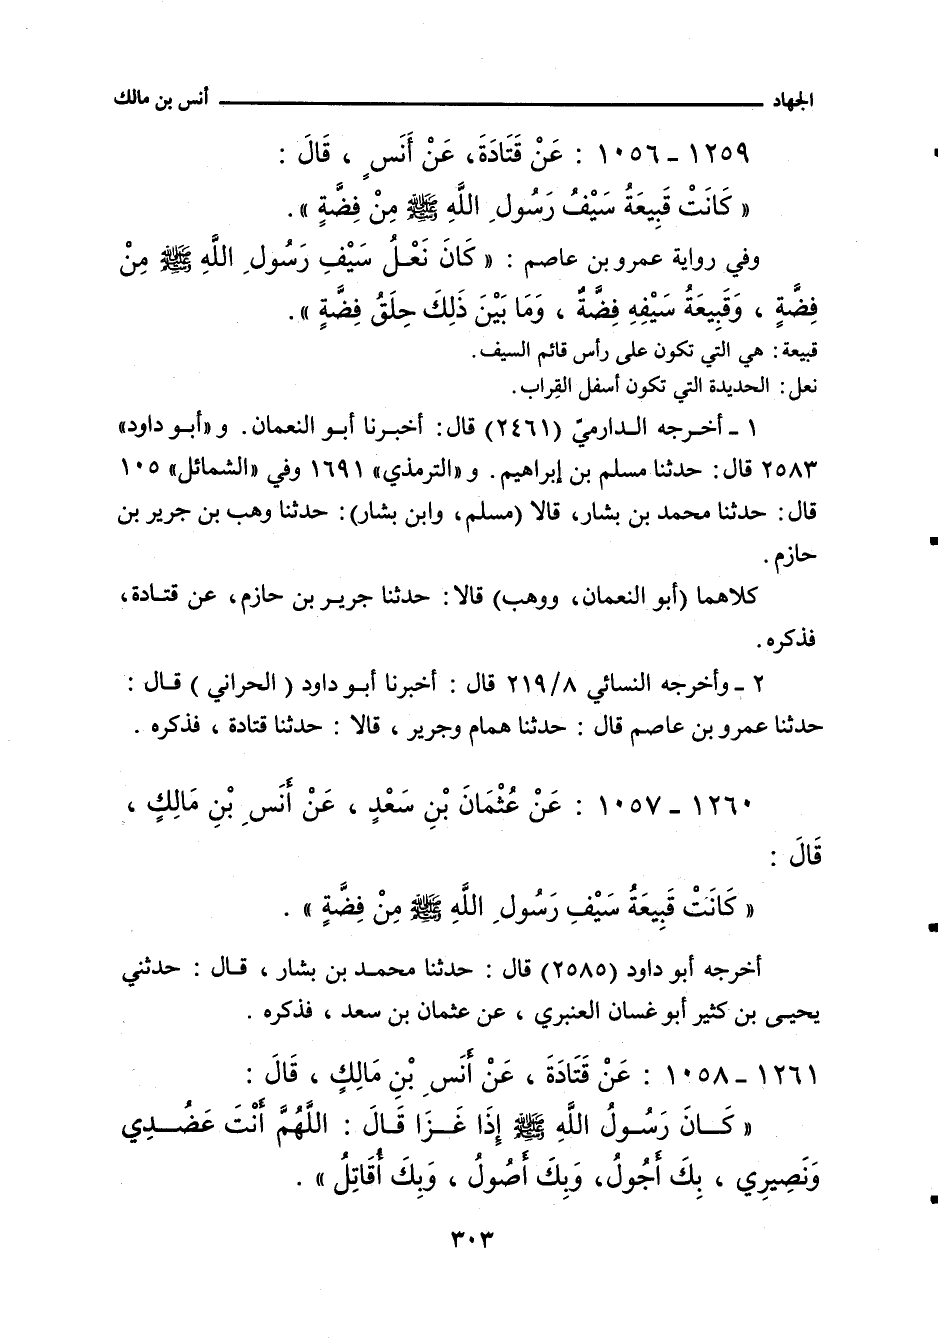 الجهاد ــــــــــــــــ أنس بن مالك
١٢٥٩ - ١٠٥٦ : عَنْ قَتَادَةَ، عَنْ أَنَسٍ ، قَالَ :
« كَانَتْ قَبِيعَةُ سَيْفُ رَسُولِ اللَّهِ ﷺ مِنْ فِضَّةٍ ».
وفي رواية عمرو بن عاصم : « كَانَ نَعْلُ سَيْفِ رَسُولِ اللَّهِ ﷺ مِنْ
فِضَّةٍ ، وَقَبِيعَةُ سَيْفِهِ فِضَّةٌ ، وَمَا بَيْنَ ذَلِكَ حِلَقُ فِضَّةٍ ».
قبيعة: هي التي تكون على رأس قائم السيف.
نعل: الحديدة التي تكون أسفل القِراب.
١ - أخرجه الدارميّ (٢٤٦١) قال: أخبرنا أبو النعمان. و«أبو داود»
٢٥٨٣ قال: حدثنا مسلم بن إبراهيم. و«الترمذي» ١٦٩١ وفي «الشمائل» ١٠٥
قال: حدثنا محمد بن بشار، قالا (مسلم، وابن بشار): حدثنا وهب بن جرير بن
حازم.
كلاهما (أبو النعمان، ووهب) قالا: حدثنا جرير بن حازم، عن قتادة،
فذكره.
٢ - وأخرجه النسائي ٢١٩/٨ قال : أخبرنا أبو داود ( الحراني ) قال :
حدثنا عمرو بن عاصم قال : حدثنا همام وجرير ، قالا : حدثنا قتادة ، فذكره .
١٢٦٠ - ١٠٥٧ : عَنْ عُثْمَانَ بْنِ سَعْدٍ ، عَنْ أَنَسِ بْنِ مَالِكٍ ،
قَالَ :
« كَانَتْ قَبِيعَةُ سَيْفِ رَسُولِ اللَّهِ ﷺ مِنْ فِضَّةٍ » .
أخرجه أبو داود (٢٥٨٥) قال : حدثنا محمد بن بشار ، قال : حدثني
يحيى بن كثير أبو غسان العنبري ، عن عثمان بن سعد ، فذكره .
١٢٦١ - ١٠٥٨ : عَنْ قَتَادَةَ ، عَنْ أَنَسِ بْنِ مَالِكٍ ، قَالَ :
« كَانَ رَسُولُ اللَّهِ ﷺ إِذَا غَزَا قَالَ : اللَّهُمَّ أَنْتَ عَضُدِي
وَنَصِيرِي ، بِكَ أَجُولُ، وَبِكَ أَصُولُ ، وَبِكَ أُقَاتِلُ » .
٣٠٣